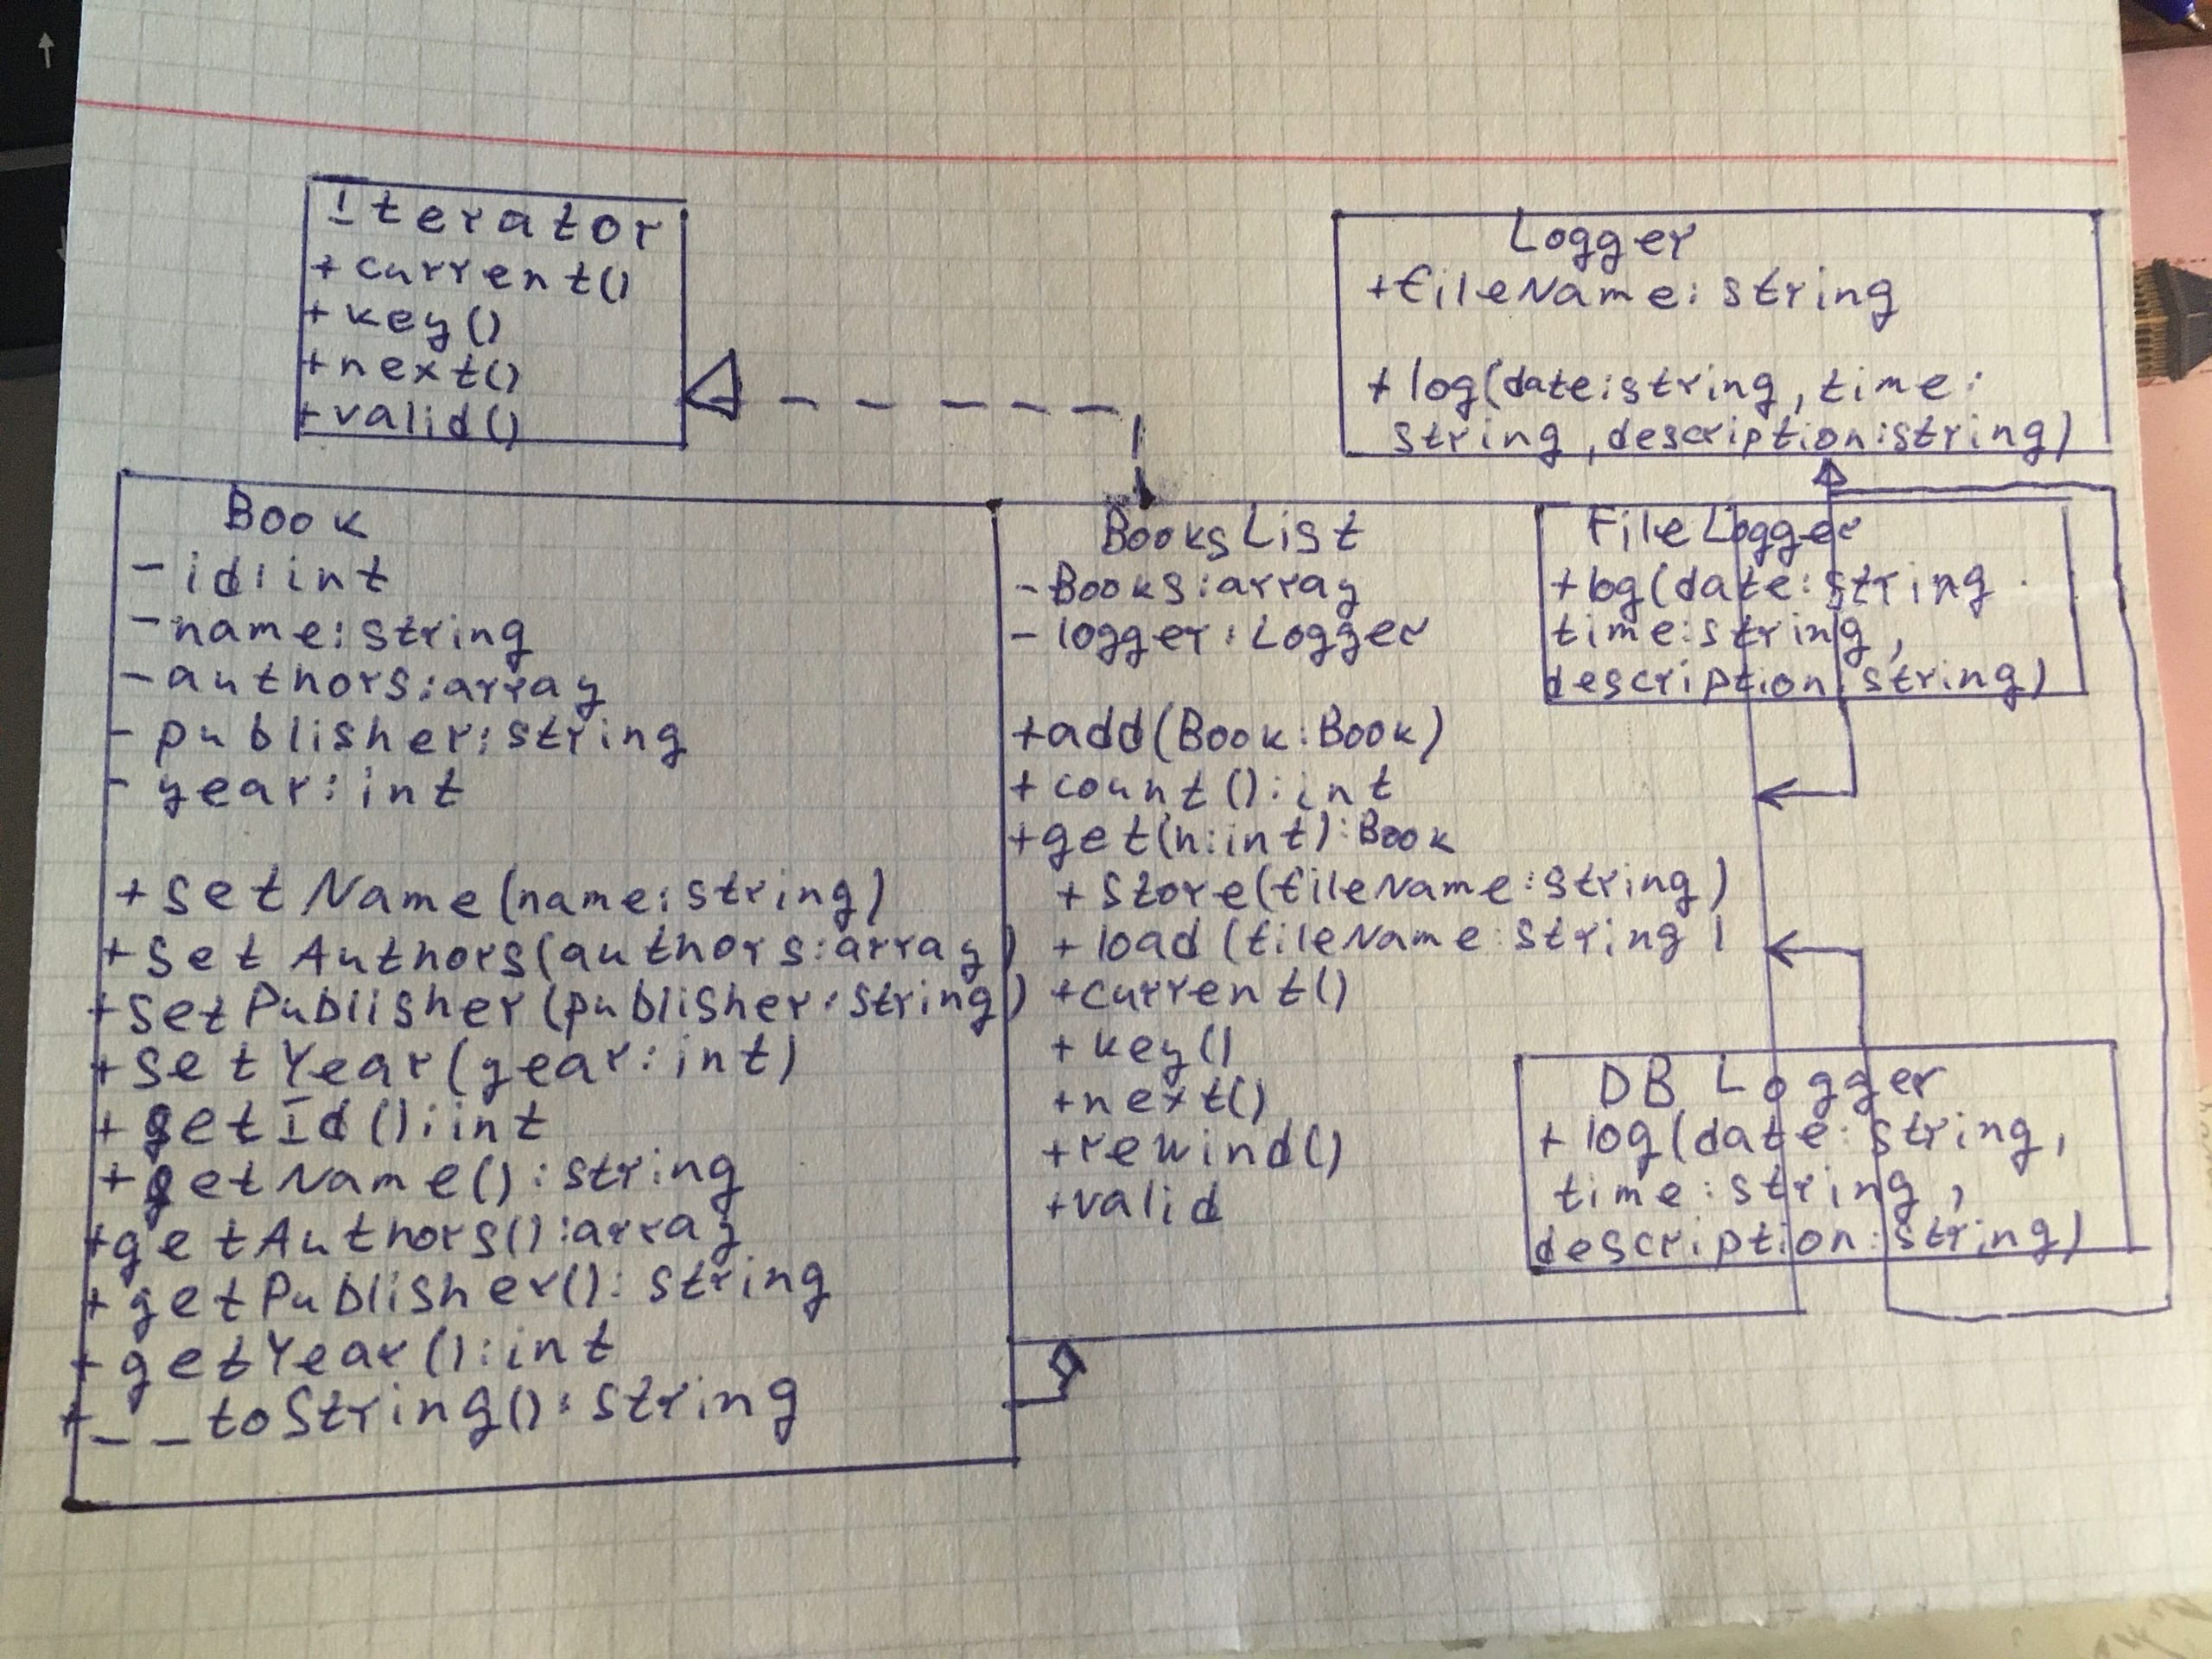 Iterator
+current()
+key()
+next()
+valid()
Logger
+fileName: string
+log(date:string, time:
string, description:string)
Book
-id:int
-name:string
-authors:array
-publisher:string
-year:int
+setName(name:string)
+setAuthors(authors:array)
+setPublisher(publisher:string)
+setYear(year:int)
+getId():int
+getName():string
+getAuthors():array
+getPublisher():string
+getYear():int
+__toString():string
BooksList
-Books:array
-logger:Logger
+add(Book:Book)
+count():int
+get(n:int):Book
+store(fileName:string)
+load(fileName:string)
+current()
+key()
+next()
+rewind()
+valid
FileLogger
+log(date:string
time:string,
description:string)
DB Logger
+log(date:string,
time:string,
description:string)